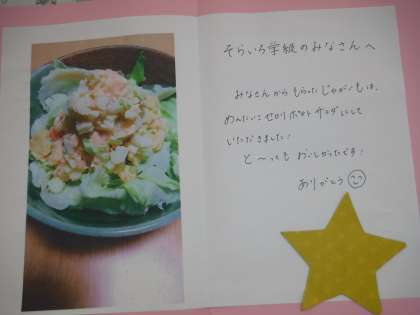 そらいろ学級のみなさんへ
みなさんから もらった じゃがいもは、
めんたいこ セロリ ポテト サラダにして
いただきました!
と〜っても おいしかったです!
ありがとう